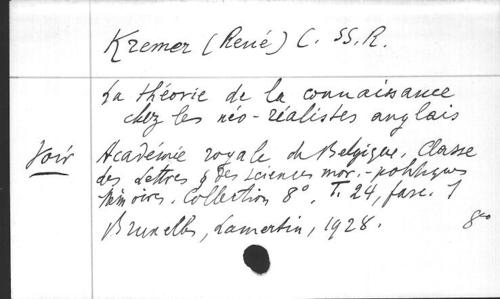 Kremer (René) C. SS. R.
La théorie de la connaissance
chez les néo-réalistes anglais
Voir Académie royale de Belgique. Classe
des Lettres & des sciences mor.-politiques
Mémoires. Collection 8°. T. 24, fasc. 1
Bruxelles, Lamertin, 1928. 8vo